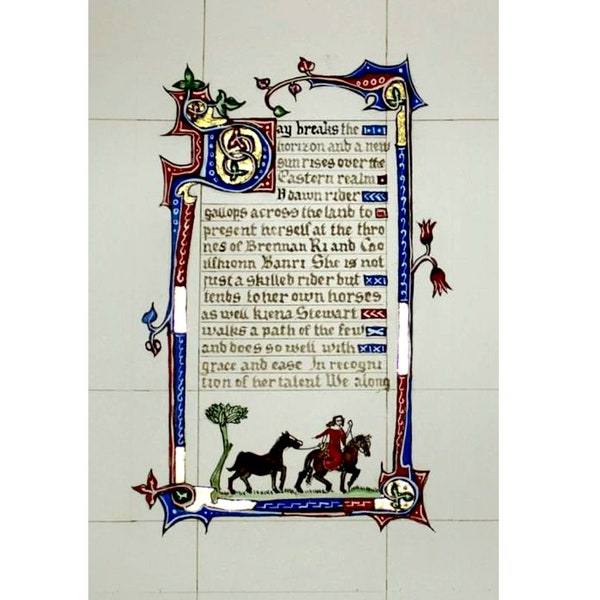 Day breaks the
horizon and a new
sun rises over the
Eastern realm
A dawn rider
gallops across the land to
present herself at the thro
nes of Brennan Ri and Cao
ilfhionn Banri She is not
just a skilled rider but
tends to her own horses
as well Kiena Stewart
walks a path of the few
and does so well with
grace and ease In recogni
tion of her talent We along